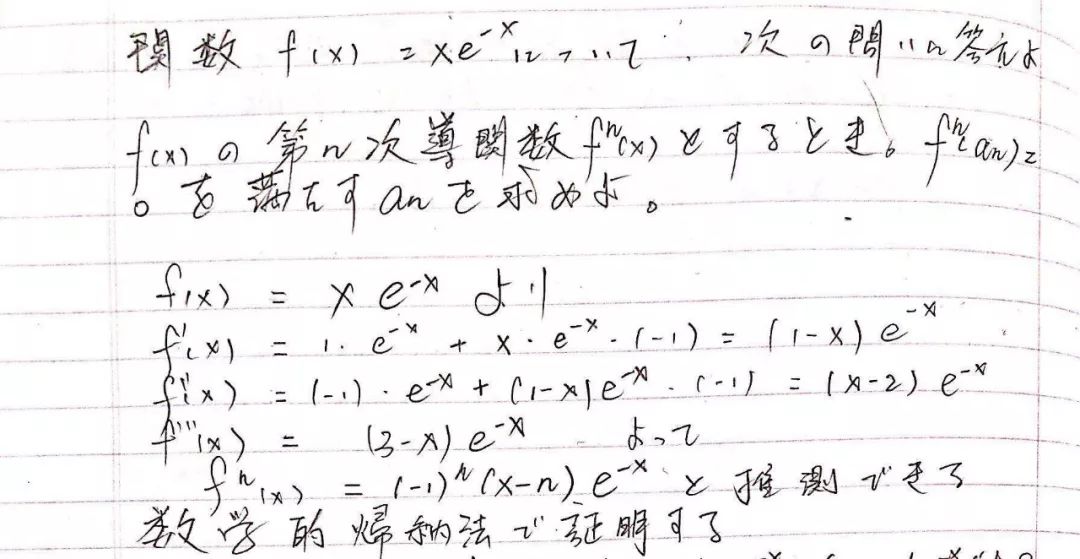 関数 f(x) = xe^{-x} について、次の問いに答えよ
f(x) の第n次導関数 f^n(x) とするとき。f^n(an)=
0 を満たす an を求めよ。
f(x) = x e^{-x} より
f'(x) = 1・e^{-x} + x・e^{-x}・(-1) = (1-x) e^{-x}
f''(x) = (-1)・e^{-x} + (1-x)e^{-x}・(-1) = (x-2) e^{-x}
f'''(x) = (3-x) e^{-x} よって
f^n(x) = (-1)^n (x-n) e^{-x} と推測できる
数学的帰納法で証明する